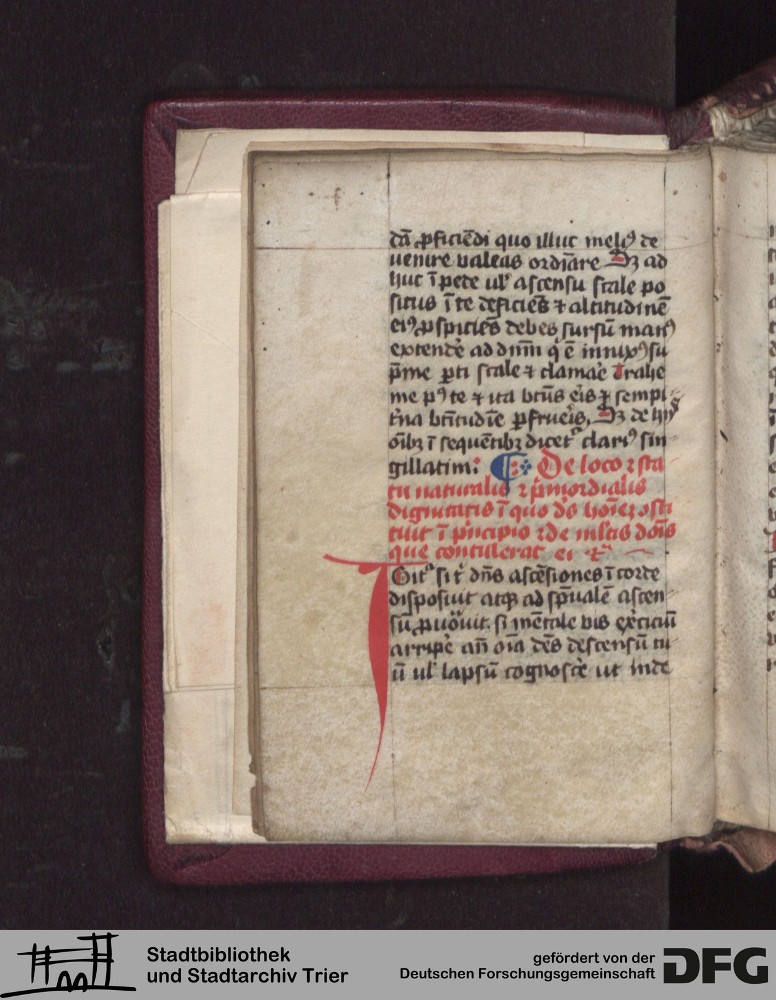 dā ꝓficiēdi quo illuc meliꝰ de
uenire valeas ordīare Sꝫ ad
huc ī pede ul' ascensu scale po
situs ī te deficiēs ⁊ altitudinē
eiꝰ ꝓspiciēs debes sursū manꝰ
extendē ad dnm̄ q' ē innixꝰ su
p̄me ꝑti scale ⁊ clamāe Trahe
me pꝰ te ⁊ ita btūs eis ⁊ sempi
t̄na btītudīe ꝑfrueīs. Sꝫ de hijꝰ
oībꝫ ī sequētibꝫ dicet' clariꝰ sin
gillatim: De loco ⁊ sta
tu naturalis ⁊ p̄mordialis
dignitatis ī quo ds̄ hoīeꝫ ꝯsti
tuit ī p̄ncipio ⁊ de mltis dois
que contulerat ei ⁊c̄
IGit' si t' dn̄s ascēsiones ī corde
disposuit atqꝫ ad sp̄ualē ascen
sū ꝓuōuit. si mentale vis ex̄citiū
arripe an̄ oīa dēs descensū tu
ū ul' lapsū cognoscē ut inde
Stadtbibliothek
und Stadtarchiv Trier
gefördert von der
Deutschen Forschungsgemeinschaft
DFG